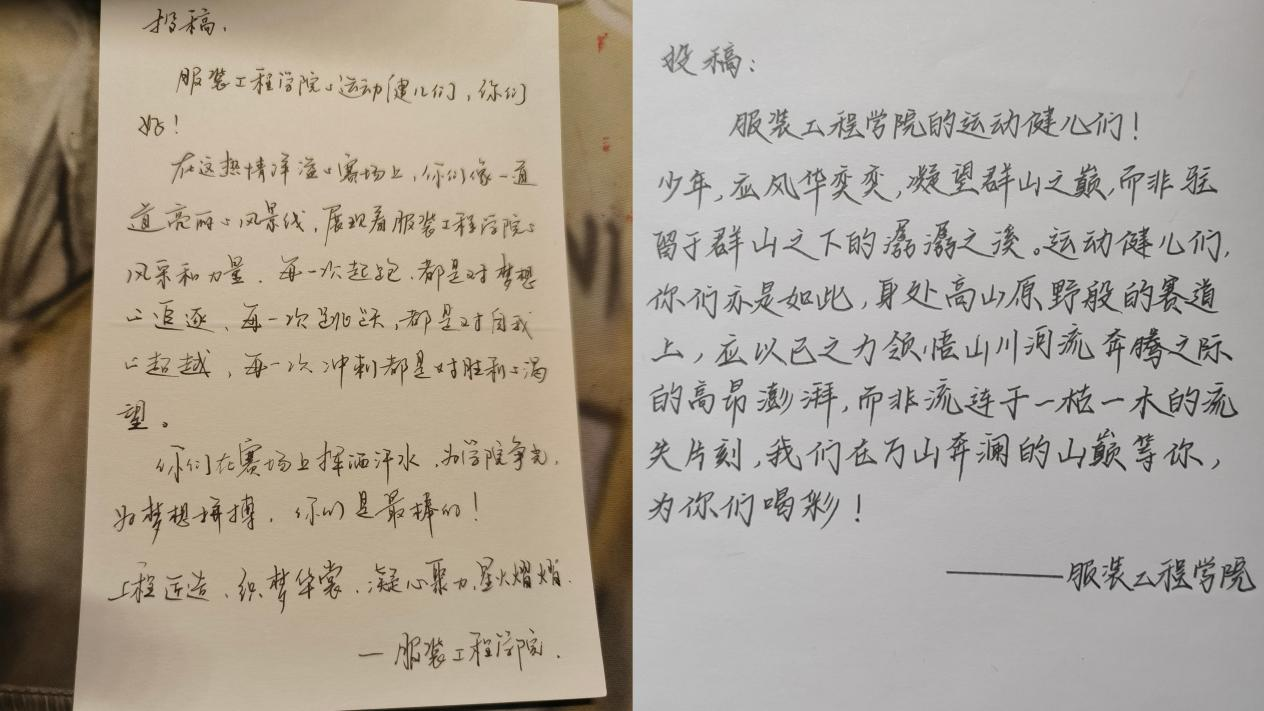 投稿,
服装工程学院的运动健儿们,你们
好!
在这热情洋溢的赛场上,你们像一道
道亮丽的风景线,展现着服装工程学院的
风采和力量,每一次起跑,都是对梦想
的追逐、每一次跳跃,都是对自我
的超越,每一次冲刺都是对胜利的渴
望。
你们在赛场上挥洒汗水,为学院争光,
为梦想拼搏,你们是最棒的!
工程匠造、织梦华裳、凝心聚力,星火熠熠.
—服装工程学院.
投稿:
服装工程学院的运动健儿们!
少年,应风华奕奕,凝望群山之巅,而非驻
留于群山之下的潺潺之溪。运动健儿们,
你们亦是如此,身处高山原野般的赛道
上,应以已之力领悟山川河流奔腾之际
的高昂澎湃,而非流连于一枯一木的流
失片刻,我们在万山奔澜的山巅等你,
为你们喝彩!
——服装工程学院